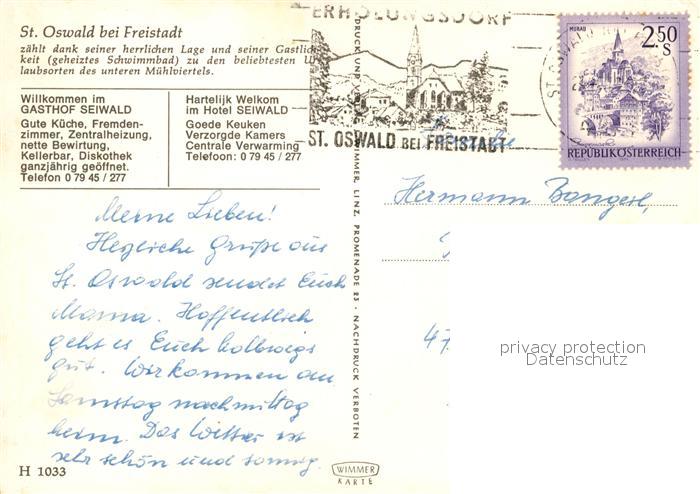 St. Oswald bei Freistadt
zählt dank seiner herrlichen Lage und seiner Gastlich-
keit (geheiztes Schwimmbad) zu den beliebtesten U
laubsorten des unteren Mühlviertels.
Willkommen im
GASTHOF SEIWALD
Gute Küche, Fremden-
zimmer, Zentralheizung,
nette Bewirtung,
Kellerbar, Diskothek
ganzjährig geöffnet.
Telefon 0 79 45 / 277
Hartelijk Welkom
im Hotel SEIWALD
Goede Keuken
Verzorgde Kamers
Centrale Verwarming
Telefoon: 0 79 45 / 277
ERHOLUNGSDORF
ST. OSWALD BEI FREISTADT
MURAU
2.50
S
REPUBLIK ÖSTERREICH
DRUCK UND VERLAG WIMMER, LINZ, PROMENADE 23 · NACHDRUCK VERBOTEN
Familie
Hermann Bangerl,
47
Meine Lieben!
Herzliche Grüße aus
St. Oswald sendet Euch
Mama. Hoffentlich
geht es Euch halbwegs
gut. Wir kommen am
Samstag nachmittag
heim. Das Wetter ist
sehr schön und sonnig.
H 1033
WIMMER
KARTE
privacy protection
Datenschutz